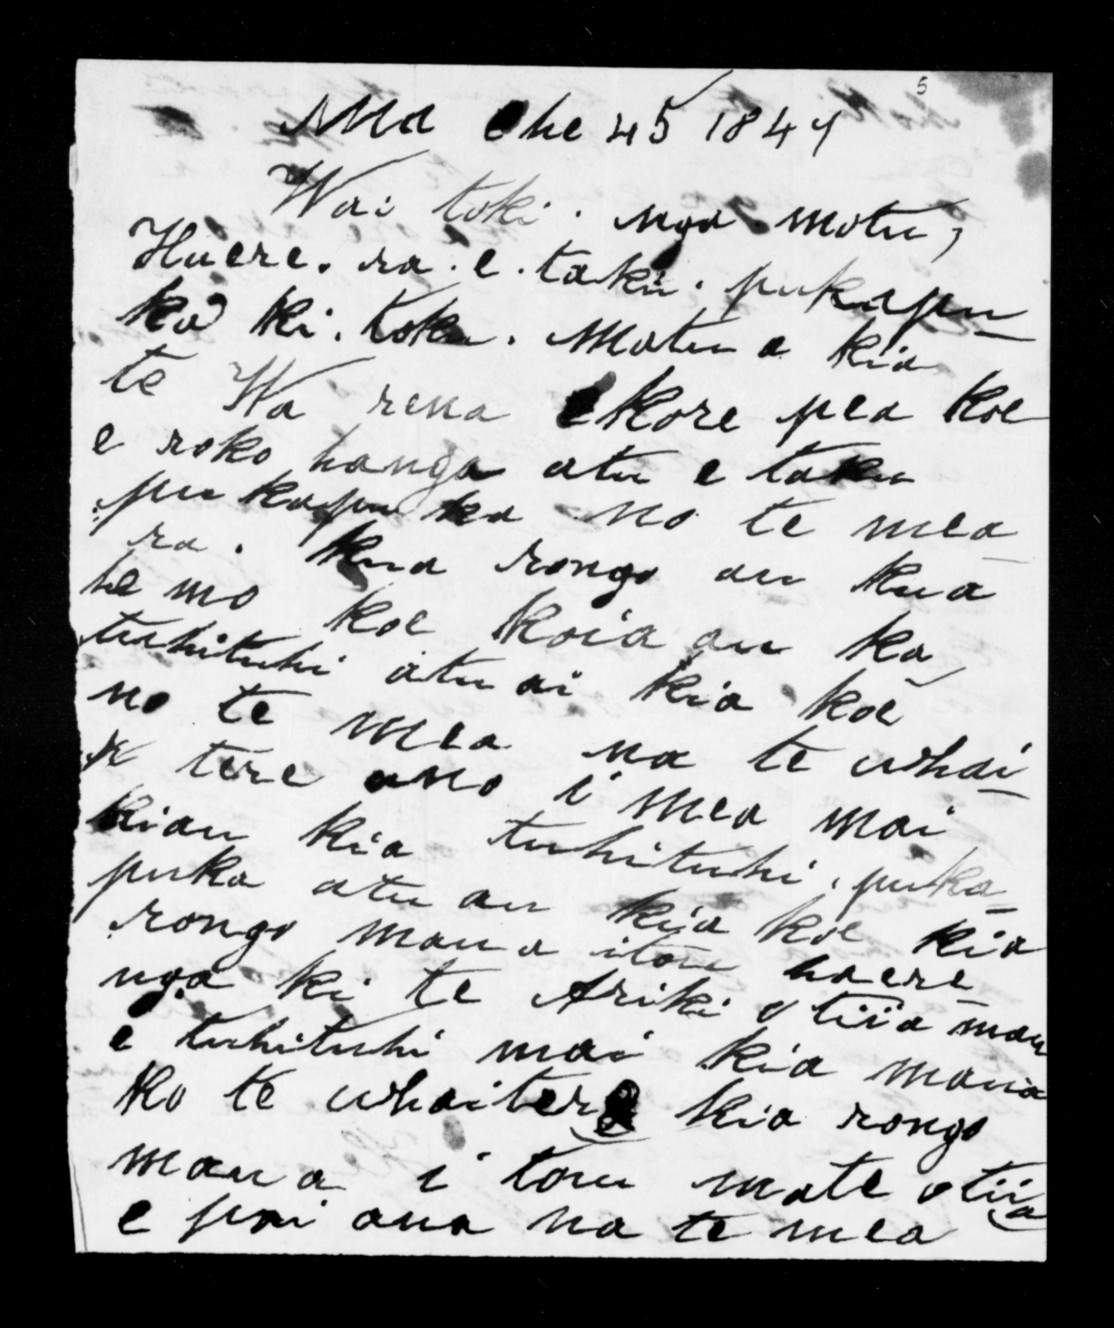 5
Ma ehe 45 1847
Wai toki. nga motu,
Haere. ra. e. taku. pukapu
ka ki. toku. Matua kia
te Wa rena ekore pea koe
e roko hanga atu e taku
pu kapu ka no te mea
ra. kua rongo au kua
he mo koe koia au ka
tuhituhi atu ai kia koe
no te mea na te whai
tere ano i mea mai
kiau kia tuhituhi, puka
puka atu au kia koe kia
rongo maua itou haere
nga ki te Ariki otiia mau
e tuhituhi mai kia maua
ko te whaitere kia rongo
maua i tou mate otiia
e pai ana na te mea